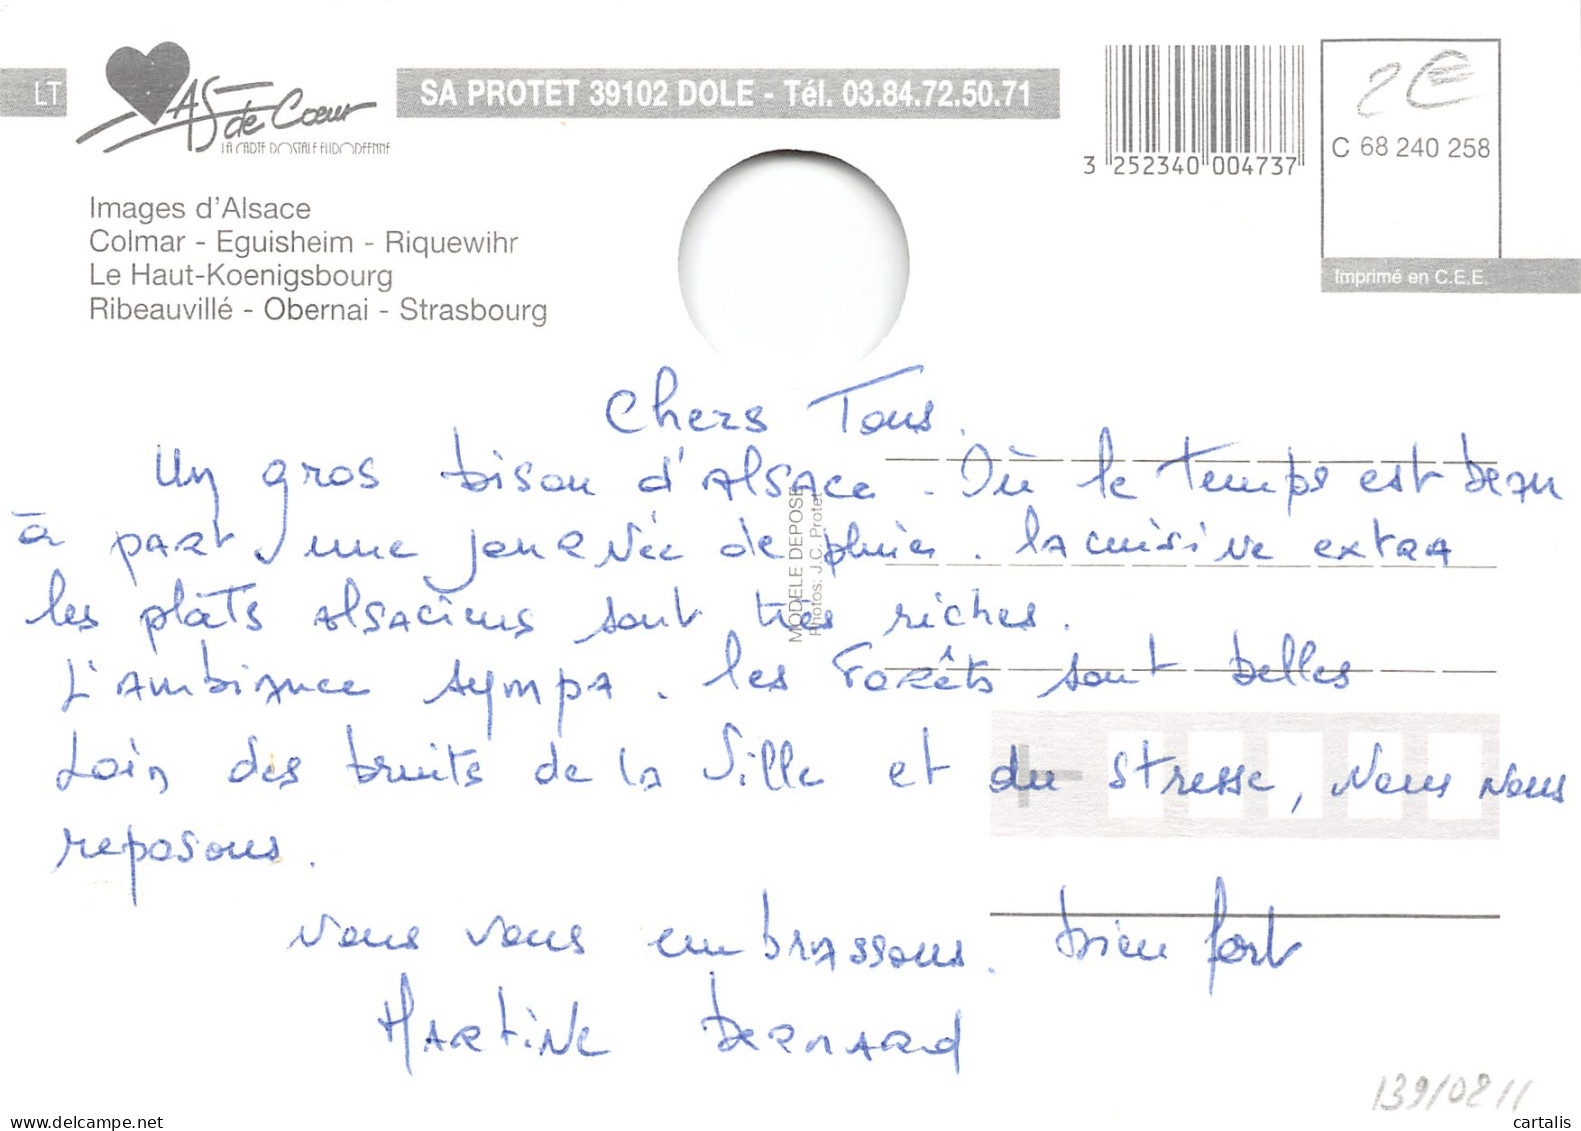 LT
As de Cœur
LA CARTE POSTALE EUROPEENNE
SA PROTET 39102 DOLE - Tél. 03.84.72.50.71
3 252340 004737
2 €
C 68 240 258
Imprimé en C.E.E.
Images d'Alsace
Colmar - Eguisheim - Riquewihr
Le Haut-Koenigsbourg
Ribeauvillé - Obernai - Strasbourg
MODELE DEPOSE
Photos: J.C. Protet
Chers Tous.
Un gros bisou d'Alsace. Où le temps est beau
à part une journée de pluie. la cuisine extra
les plâts alsaciens sont très riches.
L'ambiance sympa. les Forêts sont belles
Loin des bruits de la Ville et du stresse, Nous nous
reposons.
Nous vous embrassons. bien fort
Martine Bernard
139/0211
delcampe.net
cartalis